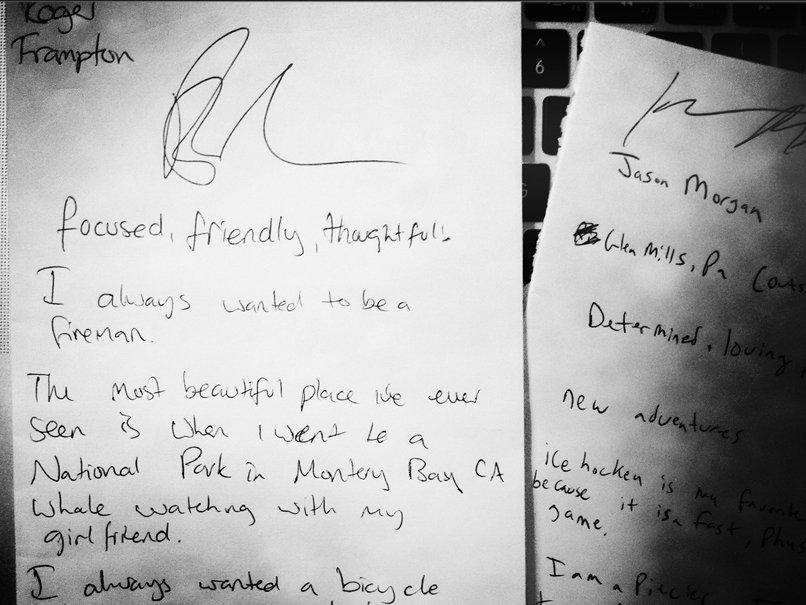 Roger
Frampton
focused, friendly, thoughtful.
I always wanted to be a
fireman.
The most beautiful place ive ever
seen is when I went to a
National Park in Montery Bay CA
whale watching with my
girlfriend.
I always wanted a bicycle
6
Jason Morgan
Glen Mills, Pa
Determined, loving
new adventures
ice hockey is my favorite
because it is a fast,
game.
I am a